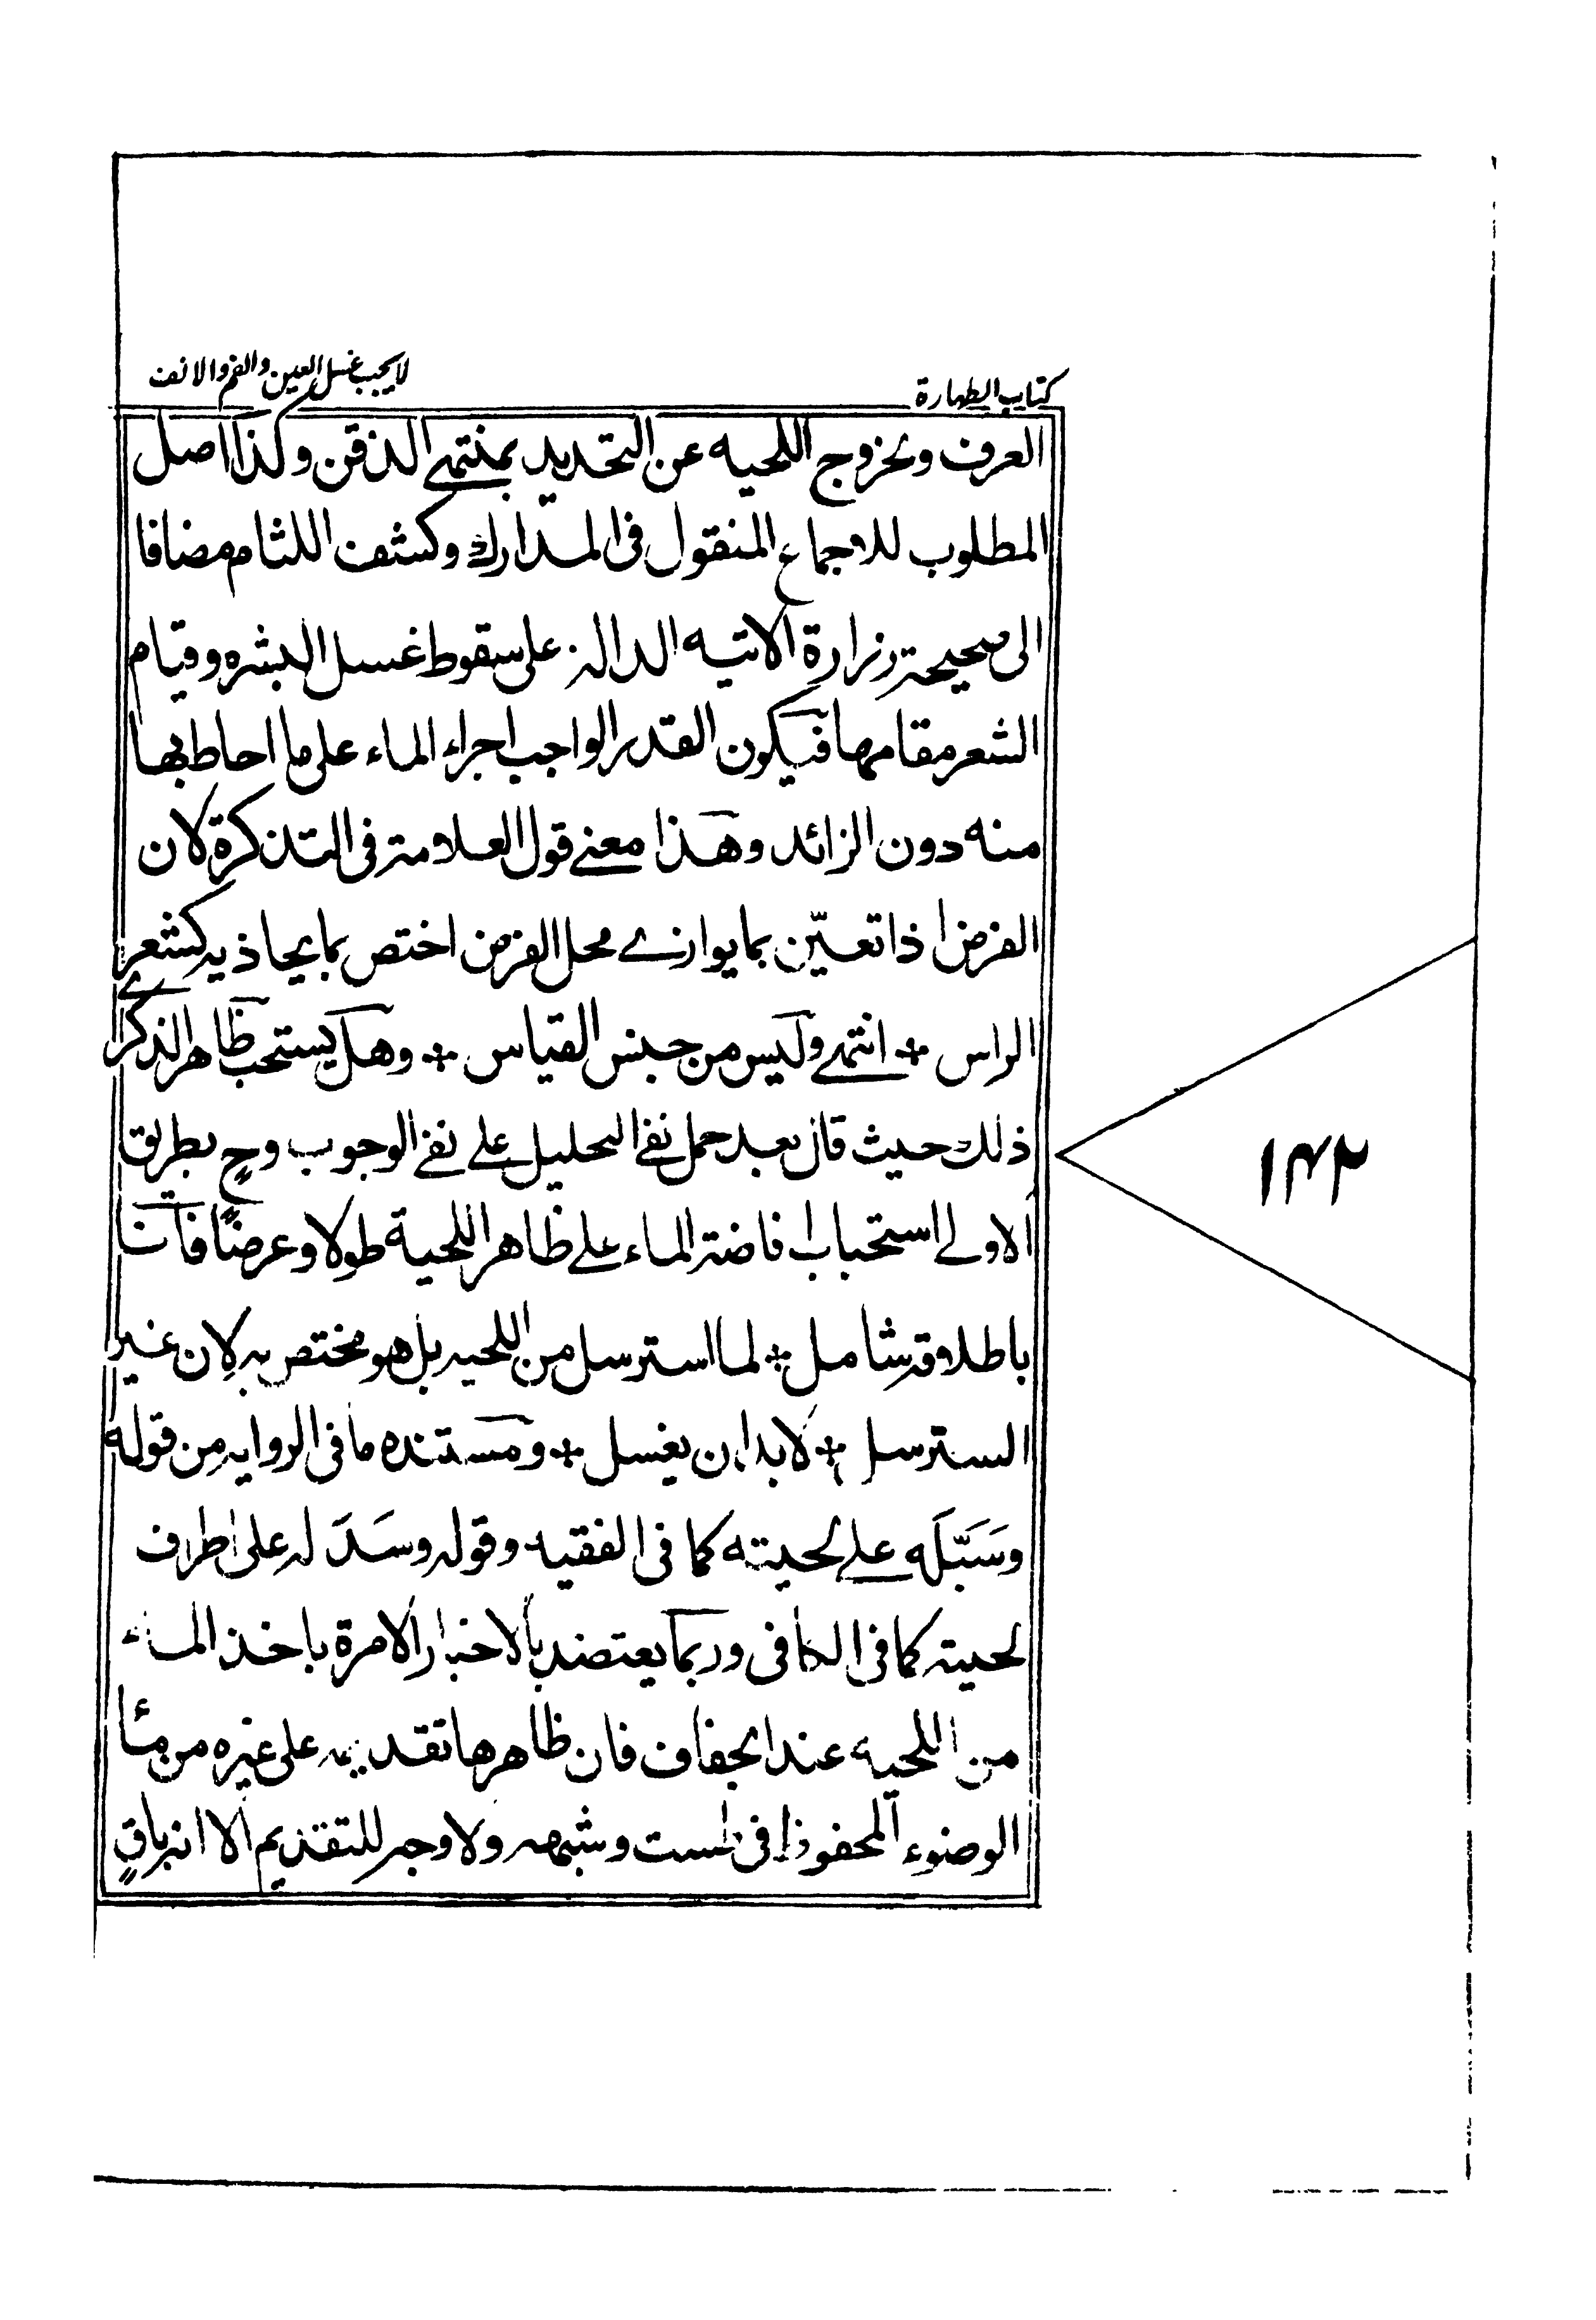 كتاب الطهارة
لا يجب غسل العين والفم والانف
العرف وبخروج اللحيه عن التحديد بمنتهى الذقن وكذا اصل
المطلوب للاجماع المنقول فى المدارك وكشف اللثام مضافا
الى صحيحة زرارة الاتيه الدالة على سقوط غسل البشره وقيام
الشعر مقامها فيكون القدر الواجب اجراء الماء على ما احاط بها
منه دون الزائد وهذا معنى قول العلامة فى التذكرة لان
الفرض اذا تعيّن بما يوازے محل الفرض اختص بما يحاذيه كشعر
الراس * انتهى وليس من جنس القياس * وهل يستحب ظاهر الذكرے
ذلك حيث قال بعد حمل نفى التحليل على نفى الوجوب وحٍ بطريق
الاولى استحباب افاضة الماء على ظاهر اللحية طولا وعرضًا فانّ
باطلاقه شامل * لما استرسل من اللحيه بل هو مختص به لان غير
المسترسل * لا بد ان يغسل * ومستنده ما فى الروايه من قوله
وسَبَّلَه على لحيته كما فى الفقيه وقوله وسَدَلَه على اطراف
لحيته كما فى الكافى وربما يعتضد بالاخبار الامرة باخذ الماء
من اللحيه عند الجفاف فان ظاهرها تقديمه على غيره من مٓا
الوضوء المحفوظ فى طست وشبهه ولا وجه للتقديم الا انه باقٍ
١٤٢